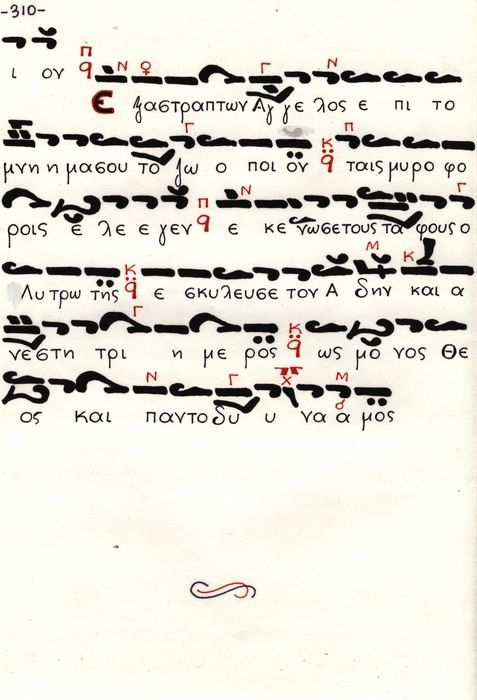 -310-
ι ον
Ε ξαστραπτων Αγ γε λος ε πι το
μνη η μασου το ζω ο ποι ον ταις μυρο φο
ροις ε λε ε γεν ε κε νωσε τους τα φους ο
Λυ τρω της ε σκυλευσε τον Α δην και α
νε στη τρι η με ρος ως μο νος Θε
ος και παντο δυ υ να α μος